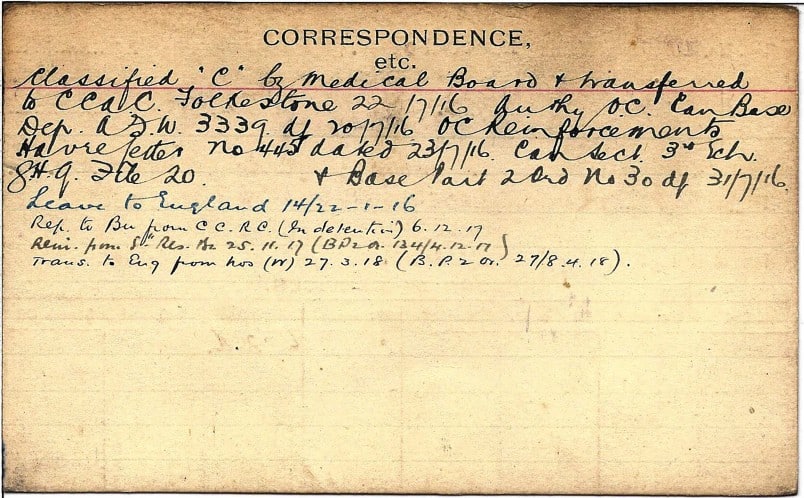 CORRESPONDENCE,
etc.
Classified "C" by Medical Board & transferred
to C.C.A.C. Folkestone 22/7/16 Authy O.C. Can Base
Dep. A.F.W. 3339. df 20/7/16 OC Reinforcements
Havre letter No 443 dated 23/7/16. Can Sect. 3rd Ech.
G.H.Q. File 20. & Base Part 2 Ord No 30 df 31/7/16.
Leave to England 14/22-1-16
Rep. to Bn from C.C.R.C. (In detention) 6.12.17
Rein. from 5th Res. Bn 25.11.17 (B.P.2 Or. 134/4.12.17)
Trans. to Eng from hos (W) 27.3.18 (B.P.2 Or. 27/8.4.18).